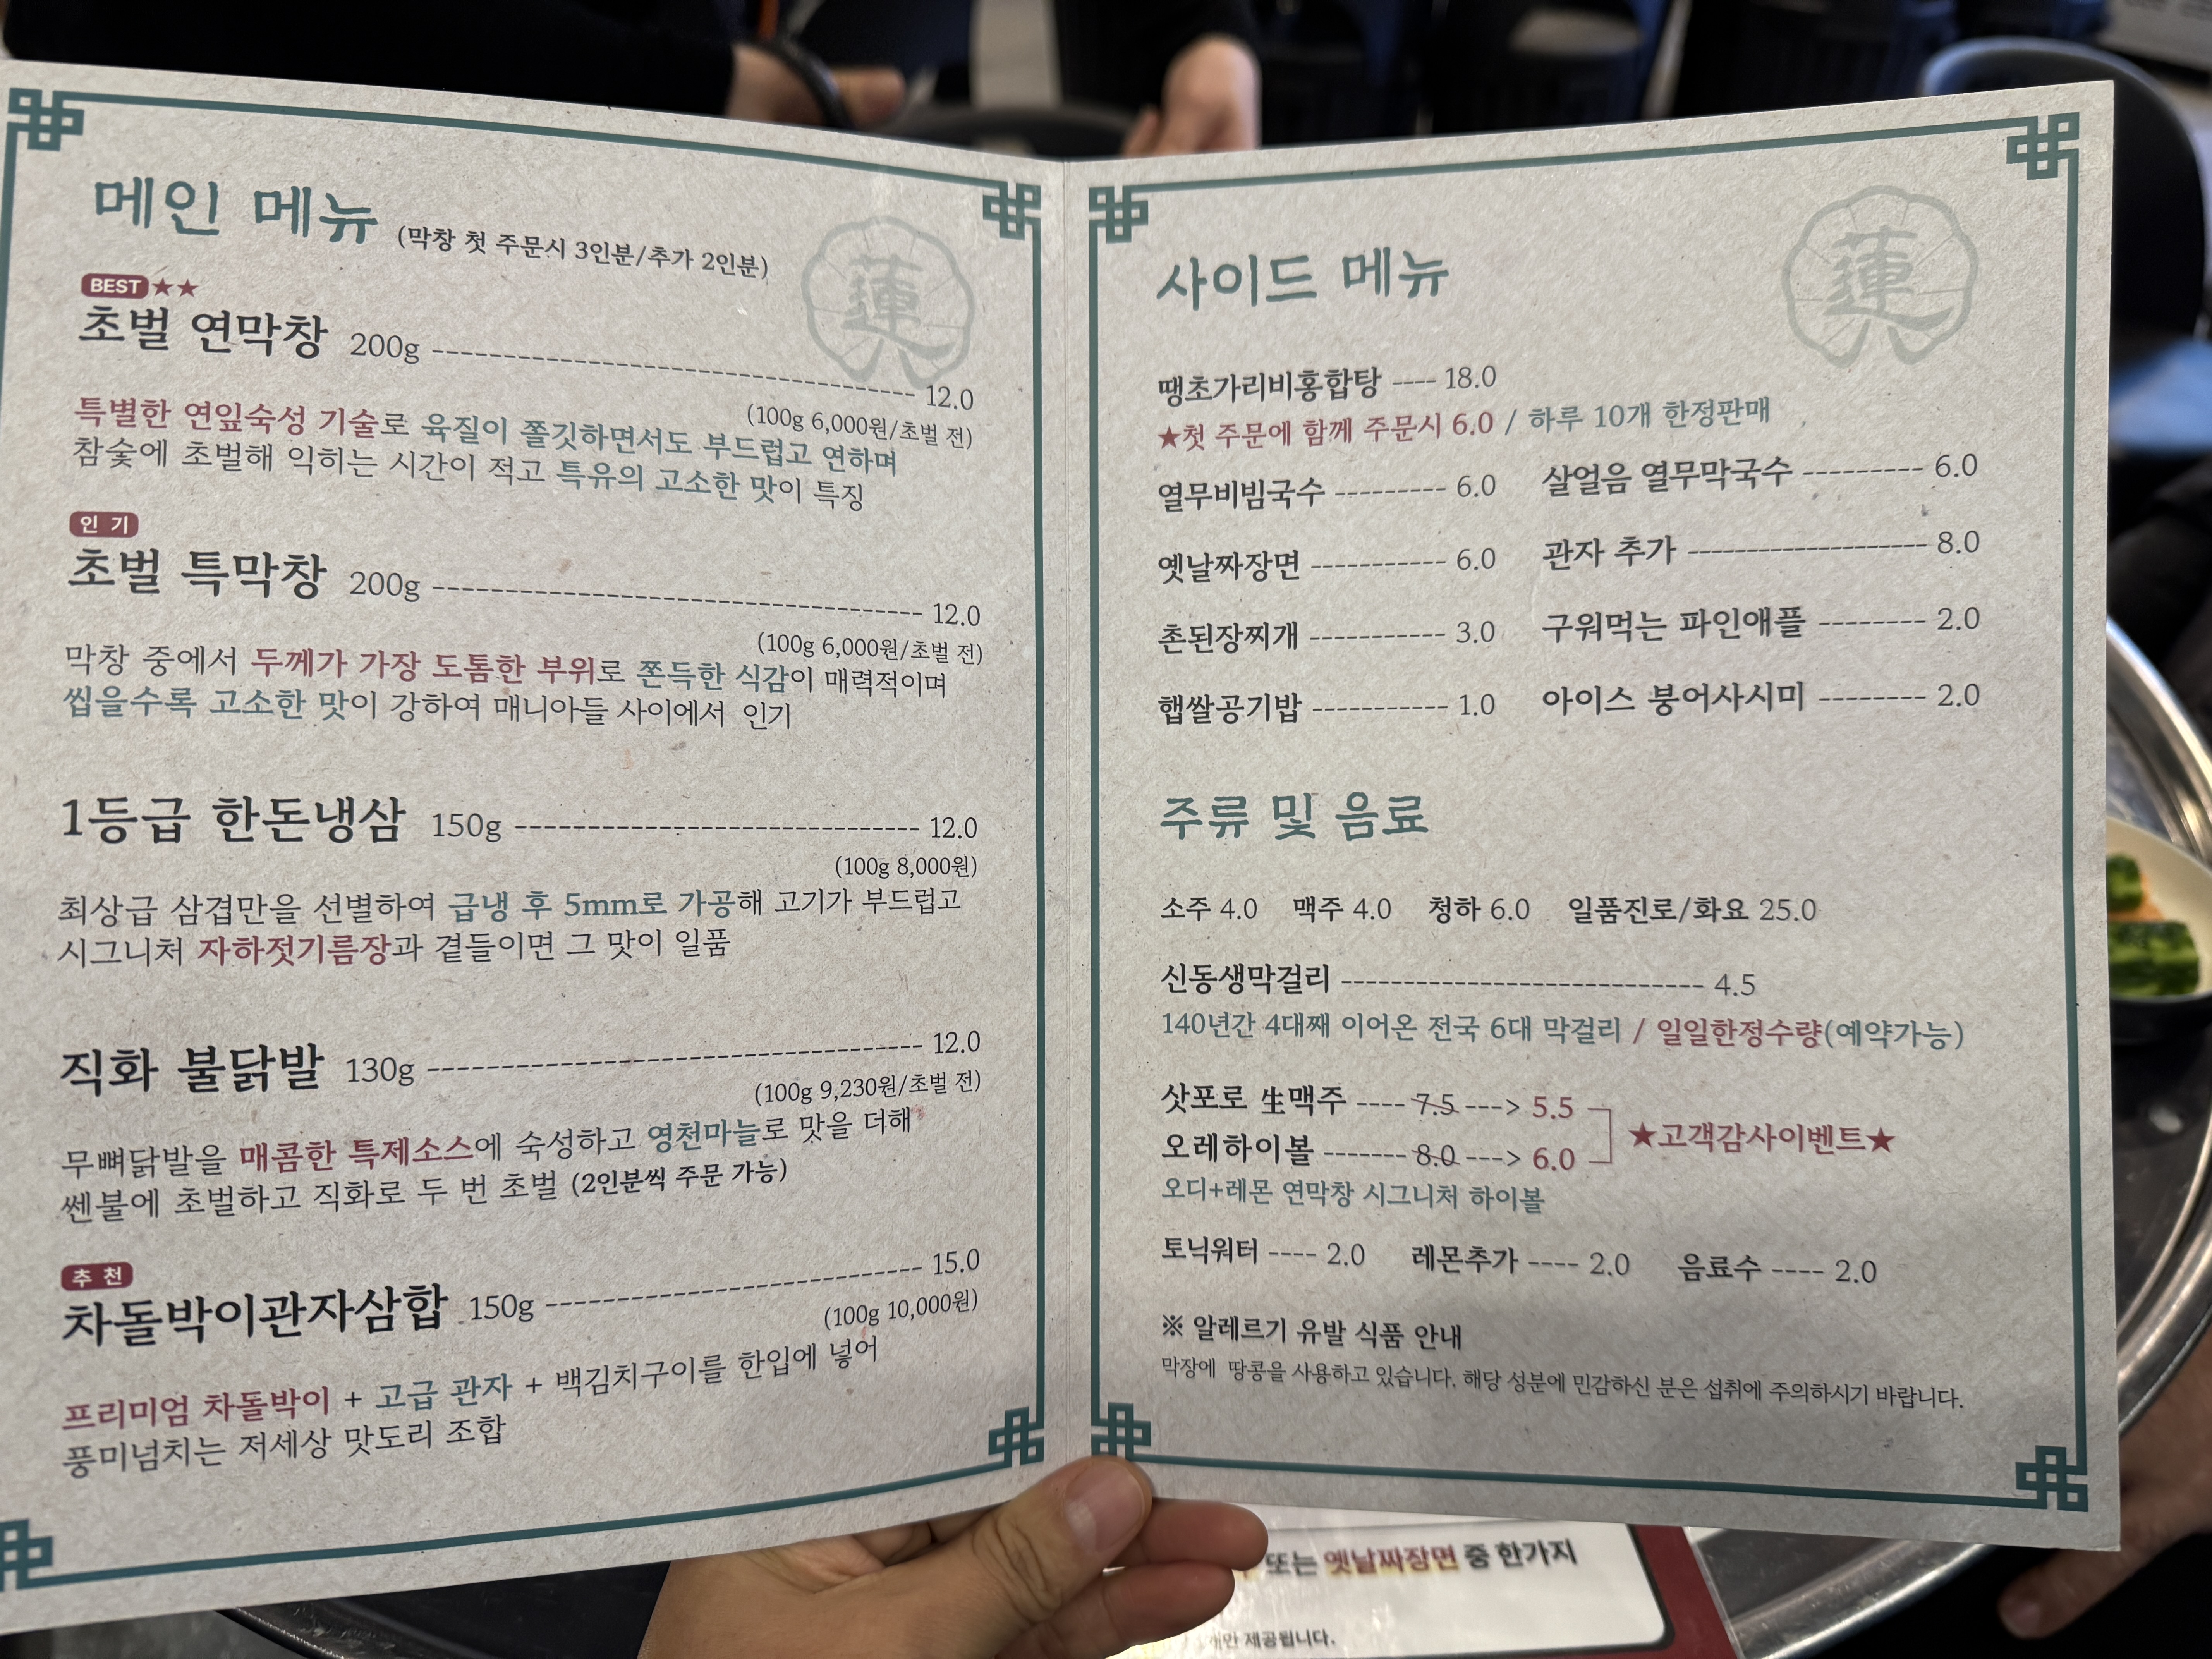 메인 메뉴 (막창 첫 주문시 3인분/추가 2인분)
蓮
BEST ★★
초벌 연막창 200g ---- 12.0
(100g 6,000원/초벌 전)
특별한 연잎숙성 기술로 육질이 쫄깃하면서도 부드럽고 연하며
참숯에 초벌해 익히는 시간이 적고 특유의 고소한 맛이 특징
인 기
초벌 특막창 200g ---- 12.0
(100g 6,000원/초벌 전)
막창 중에서 두께가 가장 도톰한 부위로 쫀득한 식감이 매력적이며
씹을수록 고소한 맛이 강하여 매니아들 사이에서 인기
1등급 한돈냉삼 150g ---- 12.0
(100g 8,000원)
최상급 삼겹만을 선별하여 급냉 후 5mm로 가공해 고기가 부드럽고
시그니처 자하젓기름장과 곁들이면 그 맛이 일품
직화 불닭발 130g ---- 12.0
(100g 9,230원/초벌 전)
무뼈닭발을 매콤한 특제소스에 숙성하고 영천마늘로 맛을 더해
쎈불에 초벌하고 직화로 두 번 초벌 (2인분씩 주문 가능)
추 천
차돌박이관자삼합 150g ---- 15.0
(100g 10,000원)
프리미엄 차돌박이 + 고급 관자 + 백김치구이를 한입에 넣어
풍미넘치는 저세상 맛도리 조합
사이드 메뉴
蓮
땡초가리비홍합탕 ---- 18.0
★첫 주문에 함께 주문시 6.0 / 하루 10개 한정판매
열무비빔국수 ---- 6.0 살얼음 열무막국수 ---- 6.0
옛날짜장면 ---- 6.0 관자 추가 ---- 8.0
촌된장찌개 ---- 3.0 구워먹는 파인애플 ---- 2.0
햅쌀공기밥 ---- 1.0 아이스 붕어사시미 ---- 2.0
주류 및 음료
소주 4.0 맥주 4.0 청하 6.0 일품진로/화요 25.0
신동생막걸리 ---- 4.5
140년간 4대째 이어온 전국 6대 막걸리 / 일일한정수량(예약가능)
삿포로 生맥주 ---- 7.5 ---> 5.5
오레하이볼 ---- 8.0 ---> 6.0
★고객감사이벤트★
오디+레몬 연막창 시그니처 하이볼
토닉워터 ---- 2.0 레몬추가 ---- 2.0 음료수 ---- 2.0
※ 알레르기 유발 식품 안내
막장에 땅콩을 사용하고 있습니다. 해당 성분에 민감하신 분은 섭취에 주의하시기 바랍니다.
또는 옛날짜장면 중 한가지
제공됩니다.